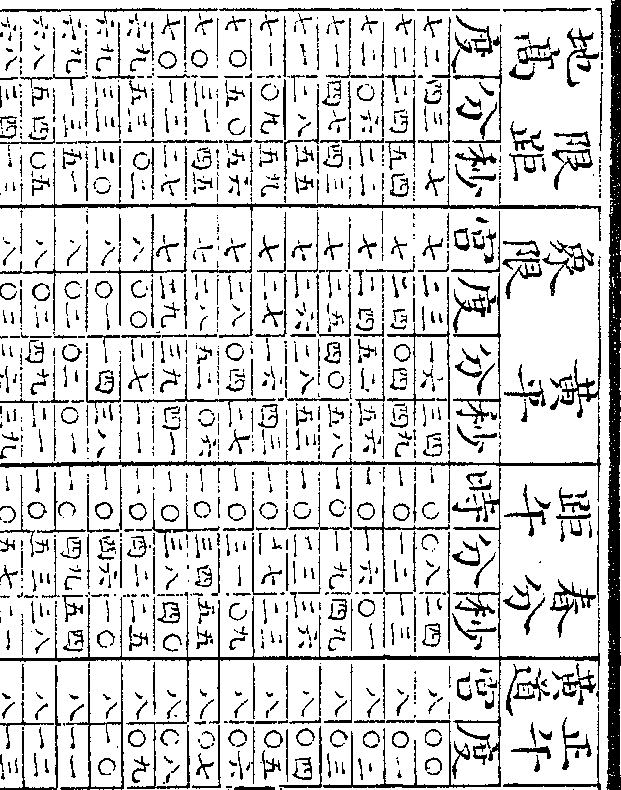 正午黃道 春分距午 黃平象限 限距地高
宮 度 時 分 秒 宮 度 分 秒 度 分 秒
八 〇〇 一〇 〇八 二四 七 二三 一六 三四 七二 四三 一七
八 〇一 一〇 一二 一三 七 二四 〇四 四九 七二 二四 五四
八 〇二 一〇 一六 〇一 七 二四 五二 五六 七二 〇六 二二
八 〇三 一〇 一九 四九 七 二五 四〇 五八 七一 四七 四三
八 〇四 一〇 二三 三六 七 二六 二八 五三 七一 二八 五五
八 〇五 一〇 二七 二三 七 二七 一六 四三 七一 〇九 五九
八 〇六 一〇 三一 〇九 七 二八 〇四 二七 七〇 五〇 五六
八 〇七 一〇 三四 五五 七 二八 五二 〇六 七〇 三一 四五
八 〇八 一〇 三八 四〇 七 二九 三九 四一 七〇 一二 二七
八 〇九 一〇 四二 二五 八 〇〇 二七 六九 五三 〇二
八 一〇 一〇 四六 一〇 八 〇一 一四 三八 六九 三三 三〇
八 一一 一〇 四九 五四 八 〇二 〇二 〇一 六九 一三 五一
八 一二 一〇 五三 三八 八 〇二 四九 二一 六八 五四 〇五
八 一三 一〇 五七 二一 八 〇三 三六 三九 六八 三四 一三